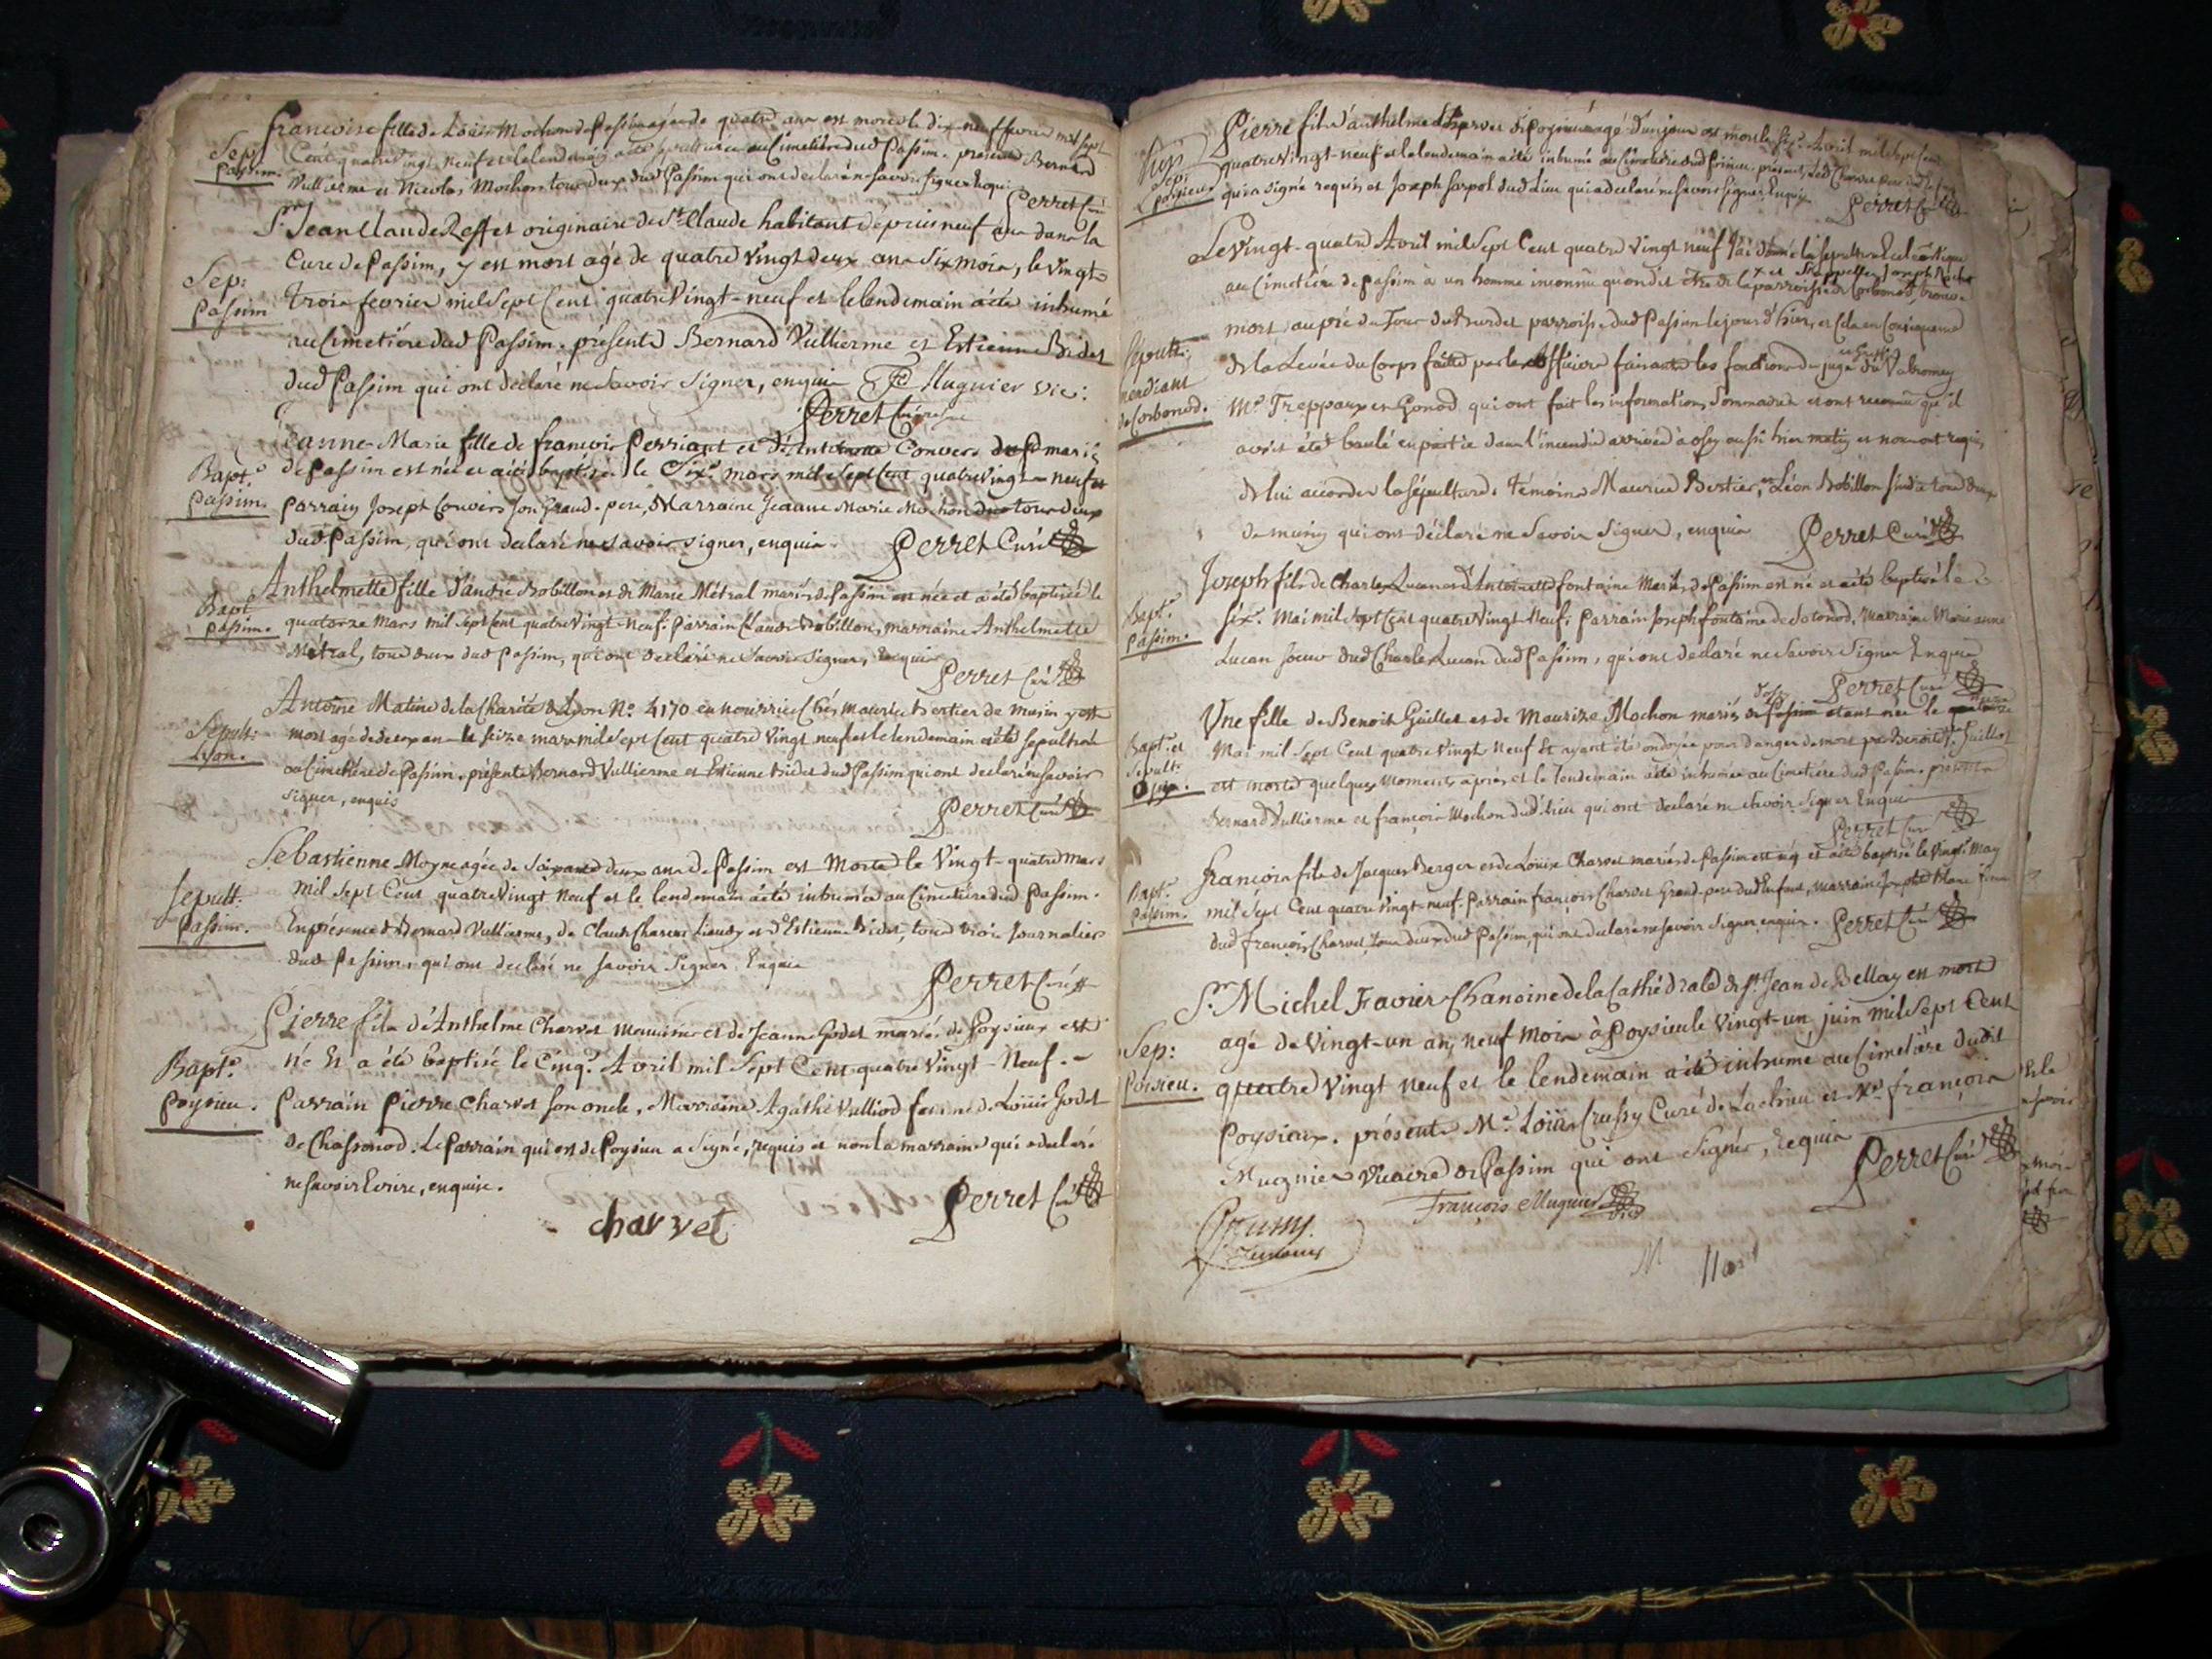 Sep:
Passim.
francoise fille de Louis Mochon de Passim agée de quatre ans est morte le dix neuf fevrier mil sept
Cent quatre vingt neuf et le lendemain a été au Cimetière dud Passim. présents Bernard
Vullierme et Nicolas Mochon tous deux dud Passim qui ont declaré ne savoir signer Enquis
Perret Curé
Sep:
Passim
Sr. Jean Claude Reffet originaire de St. Claude habitant depuis neuf ans dans la
Cure de Passim, y est mort agé de quatre vingt deux ans six mois, le vingt-
trois fevrier mil sept Cent quatre vingt-neuf et le lendemain a été inhumé
au Cimetière dud Passim. présents Bernard Vullierme et Estienne Bridet
dud Passim qui ont declaré ne savoir signer, enquis Muguier vic:
Perret Curé
Bapt.e
passim.
Jeanne-Marie fille de françois Perriant et d'Antoinette Convers mariés
de Passim est née et a été baptisée le Six.e mars mil sept Cent quatre vingt-neuf
parrain Joseph Convers son Grand-pere, Marraine Jeanne Marie Mochon tous deux
dud Passim, qui ont declaré ne savoir signer, enquis.
Perret Curé
Bapt.e
passim.
Anthelmette fille d'andré Robillon et de Marie Métral mariés de Passim est née et a été baptisée le
quatorze Mars mil sept Cent quatre vingt-neuf. Parrain Claude Robillon, marraine Anthelmette
Métral, tous deux dud Passim, qui ont declaré ne savoir signer, Enquis
Perret Curé
Sépult:
Lyon.
Antoine Matine de la Charité de Lyon N.o 4170 en nourrice Chés maurice bertier de musin y est
mort agé de deux ans le seize mars mil sept Cent quatre vingt neuf et le lendemain a été sepulturé
au Cimetière de Passim. présents Bernard Vullierme et Estienne bridet dud Passim qui ont declaré ne savoir
signer, enquis
Perret Curé
Sepult.
Passim.
Sebastienne Moyne agée de soixante deux ans de Passim est Morte le vingt-quatre Mars
mil sept Cent quatre vingt neuf et le lendemain a été inhumée au Cimetière dud Passim.
En présence de Bernard Vullierme, de Claude et d'Estienne Bridet, tous trois Journaliers
dud Passim, qui ont declaré ne savoir signer Enquis
Perret Curé
Bapt.e
poysieu.
Pierre fils d'Anthelme Charvet et de Jeanne Godet mariés de Poysieux est
né Et a été baptisé le Cinq.e Avril mil Sept Cent quatre Vingt-Neuf.
Parrain Pierre Charvet son oncle, Marraine Agathe Vulliod femme de Louis Godet
de Chassonod. Le Parrain qui est de Poysieu a signé, requis et non la marraine qui a declaré
ne savoir Ecrire, enquise.
Perret Curé
charvet
Sep:
poisieu
Pierre fils d'anthelme Charvet de Poysieu agé d'un jour est mort le six.e Avril mil Sept Cent
quatre Vingt-neuf et le lendemain a été inhumé au Cimetière dud Poisieu. présents led Charvet pere
qui a signé requis et Joseph dud Lieu qui a declaré ne savoir signer Enquis
Perret Curé
Sépult:
mendiant
de Corbonod.
Le vingt-quatre Avril mil Sept Cent quatre vingt neuf J'ai donné la sépulture
au Cimetière de passim à un homme inconnu qu'on dit être de la parroisse de Corbonod, trouvé
et s'appeller Joseph
mort au pié du Four parroisse dud Passim le jour d'hier, et Cela en Conséquence
de la Levée du Corps faitte par les Officiers faisants les fonctions de juge du Valromey
M.e Treppaux et Gonod qui ont fait les informations Sommaires et ont reconnu qu'il
avoit été brulé en partie dans l'incendie arrivé à ossy aussi hier matin et nous ont requis
de lui accorder la sépulture. témoins Maurice Bertier, et Léon Robillon sindic tous deux
de musin qui ont déclaré ne savoir signer, enquis
Perret Curé
Bapt.e
Passim.
Joseph fils de Charles Lucan et d'Antoinette fontaine Mariés de Passim est né et a été baptisé le
six.e Mai mil sept Cent quatre Vingt Neuf. parrain Joseph fontaine de Sotonod, marraine Marie anne
Lucan soeur dud Charles Lucan dud Passim, qui ont declaré ne savoir signer Enquis
Perret Curé
Bapt. et
Sepult:
Une fille de Benoit Guillet et de Maurize Mochon mariés étant née le
Mai mil sept Cent quatre Vingt Neuf Et ayant été ondoyée pour danger de mort par Benoit Guillet
est morte quelques Moments après et le lendemain a été inhumée au Cimetière dud Passim. présents
Bernard Vullierme et françois Mochon dud. Lieu qui ont declaré ne savoir signer Enquis
Perret Curé
Bapt.e
Passim.
françois fils de Jacques Berger et de Louise Charvet mariés de Passim est né et a été baptisé le vingt.e May
mil Sept Cent quatre Vingt-neuf. Parrain françois Charvet Grand-pere dud Enfant, Marraine Josephte Blanc femme
dud françois Charvet, tous deux dud Passim, qui ont declaré ne savoir signer, enquis.
Perret Curé
Sep:
Poisieu.
Sr. Michel Favier Chanoine de la Cathédrale de St. Jean de Bellay est mort
agé de Vingt-un an, neuf mois à Poysieu le Vingt-un juin mil Sept Cent
quatre Vingt neuf et le lendemain a été inhumé au Cimetière dudit
Poysieux. présents M.e Louis Crussy Curé de Lochieu et Sr. françois
Mugnier Vicaire de Passim qui ont signés, Requis
Perret Curé
François Muguier vic